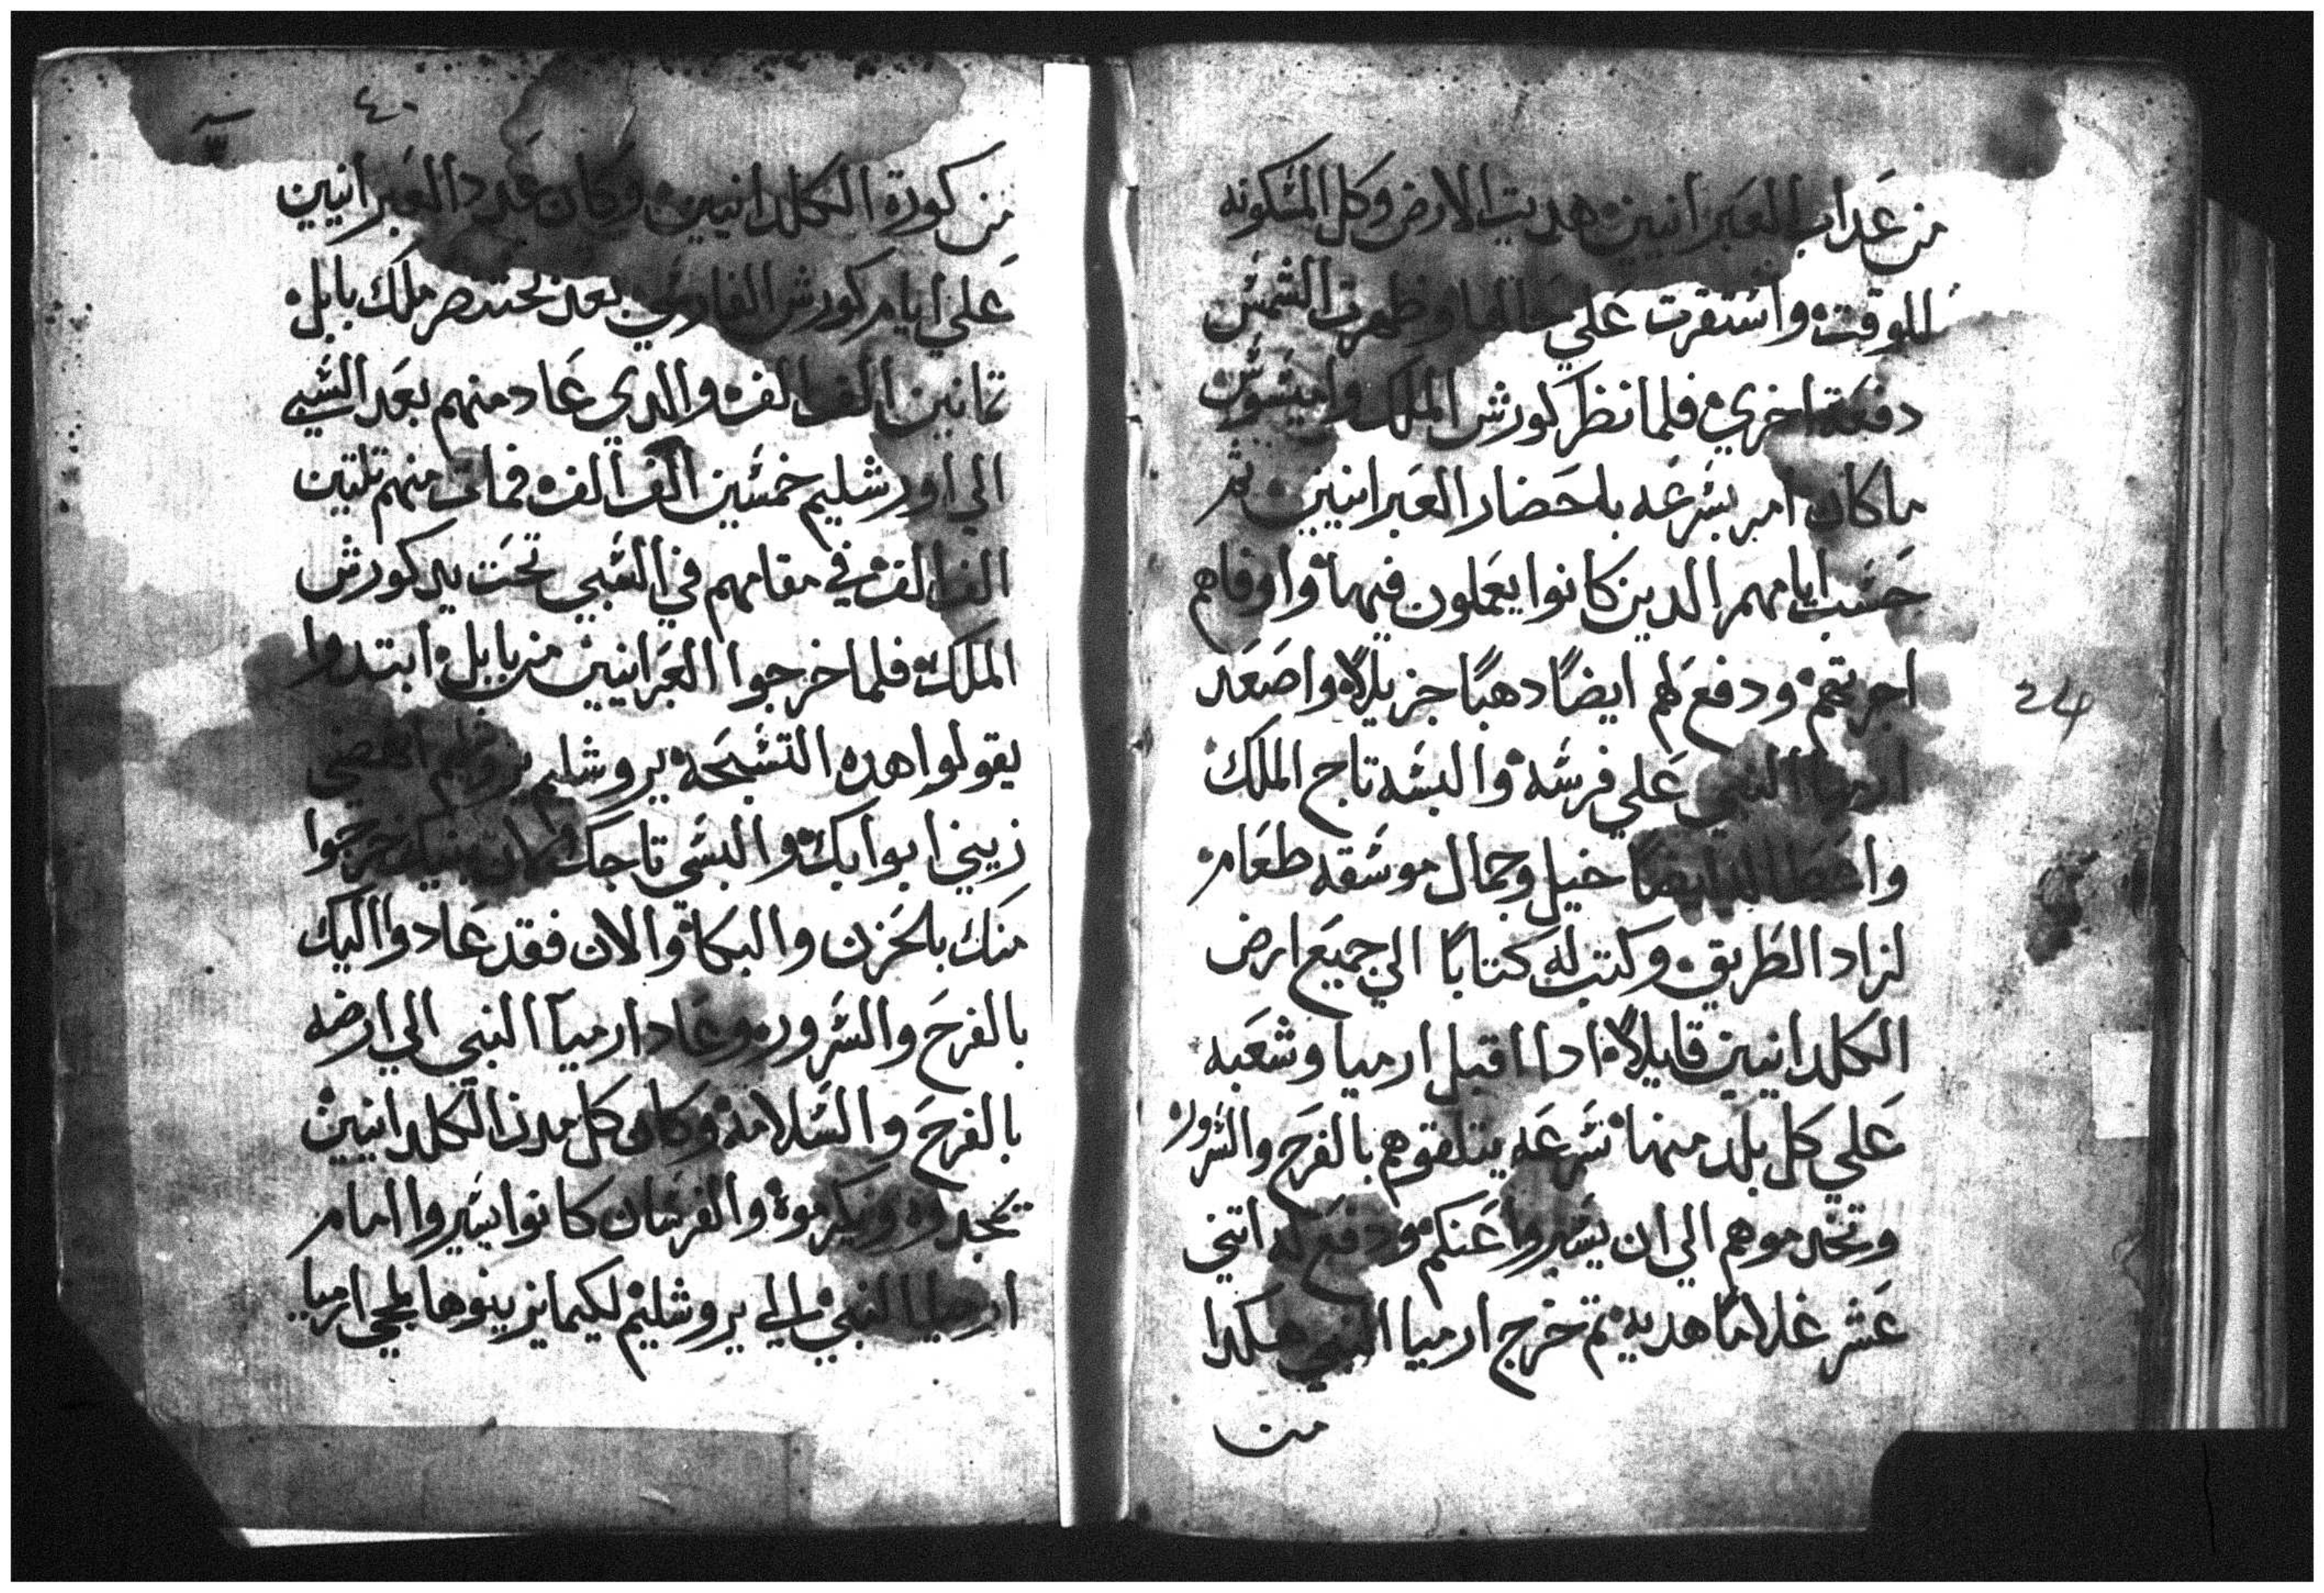 من عداب العبرانيين هديت الارض وكل المسكونه
للوقت واستقرت علي حالها وظهرت الشمس
دفعة اخري فلما نظر كورش الملك واميسوس
ما كان امر بسرعه باحضار العبرانيين ثم
حسب ايامهم الدين كانوا يعملون فيها واوفاهم
اجرتهم ودفع لهم ايضًا دهبًا جزيلًا واصعد
ارميا النبي علي فرسه والبسه تاج الملك
واعطا لهم ايضًا خيل وجمال موسقه طعام
لزاد الطريق وكتب له كتابًا الي جميع ارض
الكلدانيين قايلًا ادا اقبل ارميا وشعبه
علي كل بلد منها بسرعه يتلقوهم بالفرح والسرور
وتخدموهم الي ان يسيروا عنكم ودفع له اتني
عشر غلامًا هديه تم خرج ارميا النبي هكدا
من
٤٠
من كورة الكلدانيين وكان عدد العبرانيين
علي ايام كورش الفارسي بعد بختنصر ملك بابل
تمانين الف الف والدي عاد منهم بعد السبي
الي اورشليم خمسين الف الف فمات منهم تلتين
الف الف في مقامهم في السبي تحت يد كورش
الملك فلما خرجوا العبرانيين من بابل ابتدوا
يقولوا هده التسبحة يروشليم يروشليم انهضي
زيني ابوابك والبسي تاجك فان بنيك خرجوا
منك بالحزن والبكا والان فقد عادوا اليك
بالفرح والسرور وعاد ارميا النبي الي ارضه
بالفرح والسلامة وكان كل مدن الكلدانيين
تمجدوه ويكرموة والفرسان كانوا يسيروا امام
ارميا النبي الي يروشليم لكيما يزينوها لمجي ارميا